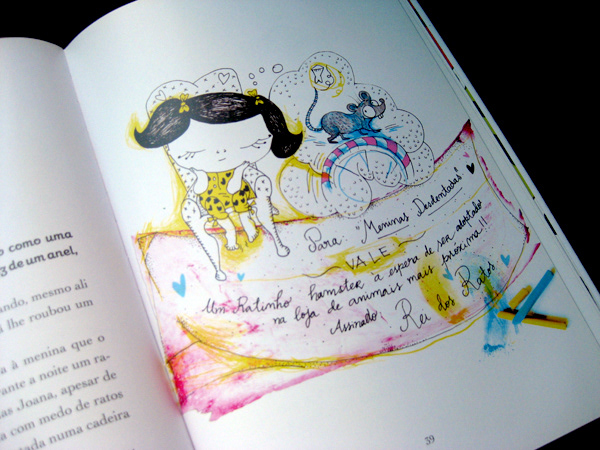 o como uma
z de um anel,
ando, mesmo ali
l lhe roubou um
a à menina que o
rante a noite um ra-
as Joana, apesar de
a com medo de ratos
tada numa cadeira
Para "Meninas Desdentadas"
VALE!
Um Ratinho hamster à espera de ser adoptado
na loja de animais mais próxima!!
Assinado, Rei dos Ratos
39